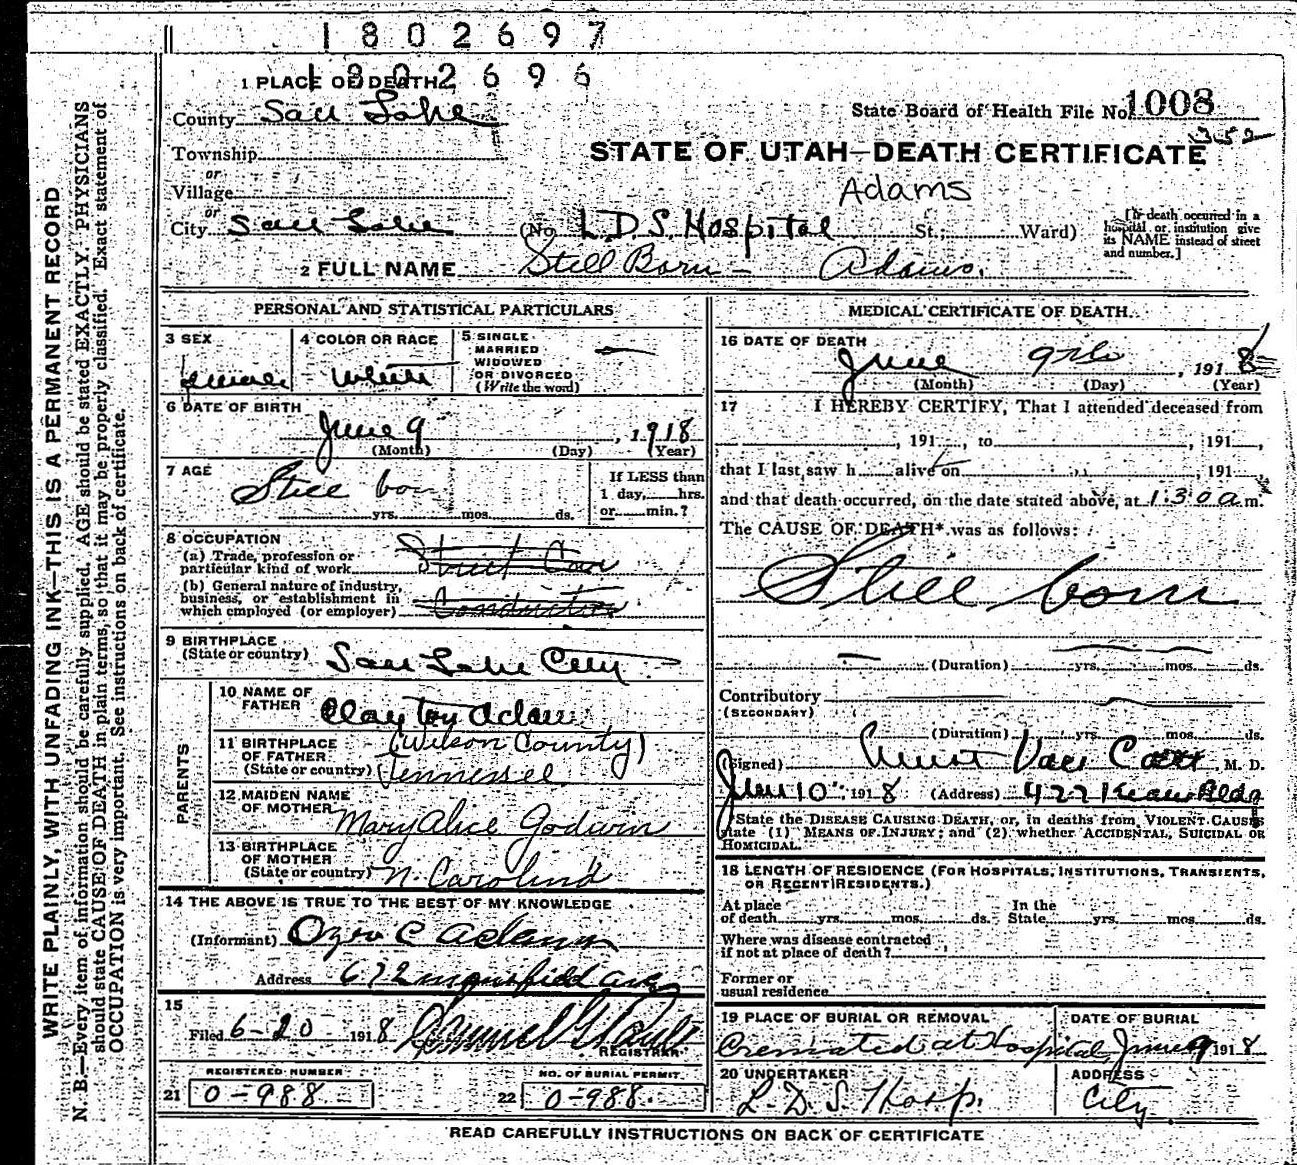 1802697
1802696
1 PLACE OF DEATH
County Salt Lake
State Board of Health File No. 1008
352
Township
or
Village
or
City Salt Lake (No. L.D.S. Hospital St.; Ward)
STATE OF UTAH—DEATH CERTIFICATE
Adams
[If death occurred in a
hospital or institution give
its NAME instead of street
and number.]
2 FULL NAME Still Born - Adams.
PERSONAL AND STATISTICAL PARTICULARS
3 SEX
female
4 COLOR OR RACE
White
5 SINGLE
MARRIED
WIDOWED
OR DIVORCED
(Write the word)
6 DATE OF BIRTH
June 9, 1918
(Month) (Day) (Year)
7 AGE
Still born
yrs. mos. ds.
If LESS than
1 day, hrs.
or min.?
8 OCCUPATION
(a) Trade, profession or
particular kind of work Street Car
(b) General nature of industry,
business, or establishment in
which employed (or employer) Construction
9 BIRTHPLACE
(State or country) Salt Lake City
PARENTS
10 NAME OF
FATHER Clayton Adams
11 BIRTHPLACE
OF FATHER
(State or country) (Wilson County)
Tennessee
12 MAIDEN NAME
OF MOTHER Mary Alice Godwin
13 BIRTHPLACE
OF MOTHER
(State or country) N. Carolina
14 THE ABOVE IS TRUE TO THE BEST OF MY KNOWLEDGE
(Informant) C Adams
Address 672 Ave
15
Filed 6-20 1918
REGISTRAR
REGISTERED NUMBER
21 0-988
NO. OF BURIAL PERMIT
22 0-988.
MEDICAL CERTIFICATE OF DEATH.
16 DATE OF DEATH
June 9th, 1918
(Month) (Day) (Year)
17 I HEREBY CERTIFY, That I attended deceased from
, 191 , to , 191 ,
that I last saw h alive on , 191 ,
and that death occurred, on the date stated above, at 1:30 a m.
The CAUSE OF DEATH* was as follows:
Still born
(Duration) yrs. mos. ds.
Contributory
(SECONDARY)
(Duration) yrs. mos. ds.
(Signed) Van Cott, M. D.
June 10, 1918 (Address) 422 Kearns Bldg
State the DISEASE CAUSING DEATH, or, in deaths from VIOLENT CAUSES
state (1) MEANS OF INJURY; and (2) whether ACCIDENTAL, SUICIDAL OR
HOMICIDAL.
18 LENGTH OF RESIDENCE (FOR HOSPITALS, INSTITUTIONS, TRANSIENTS,
OR RECENT RESIDENTS.)
At place
of death yrs. mos. ds. In the
State yrs. mos. ds.
Where was disease contracted
if not at place of death?
Former or
usual residence
19 PLACE OF BURIAL OR REMOVAL
Cremated at Hospital
DATE OF BURIAL
June 9 1918
20 UNDERTAKER
L. D. S. Hosp.
ADDRESS
City
READ CAREFULLY INSTRUCTIONS ON BACK OF CERTIFICATE
WRITE PLAINLY, WITH UNFADING INK—THIS IS A PERMANENT RECORD
N. B.—Every item of information should be carefully supplied. AGE should be stated EXACTLY. PHYSICIANS
should state CAUSE OF DEATH in plain terms, so that it may be properly classified. Exact statement of
OCCUPATION is very important. See instructions on back of certificate.